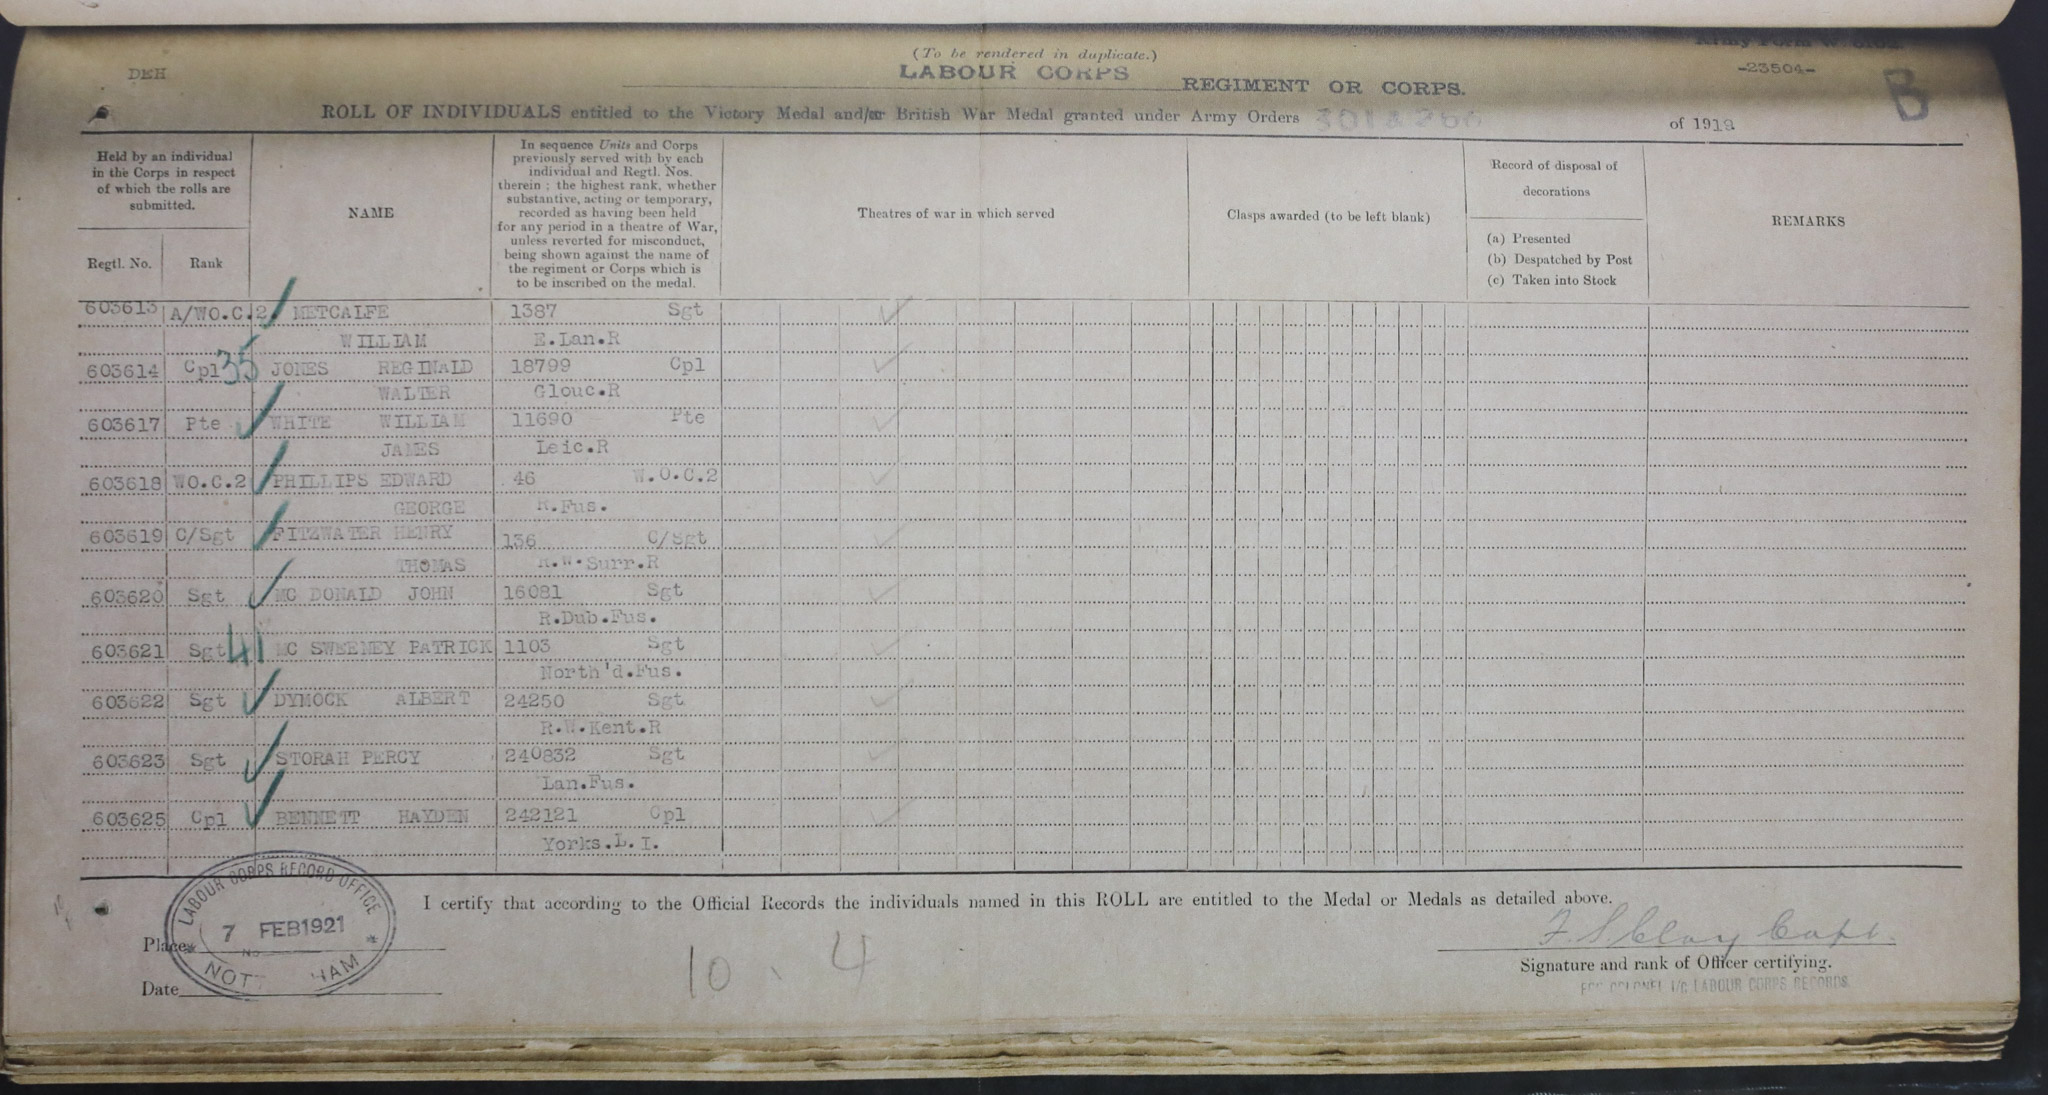 (To be rendered in duplicate.)
Army Form W. 5102
DEH
LABOUR CORPS REGIMENT OR CORPS.
-23504-
B
ROLL OF INDIVIDUALS entitled to the Victory Medal and/or British War Medal granted under Army Orders 301 & 266 of 1919
Held by an individual in the Corps in respect of which the rolls are submitted.
Regtl. No.
Rank
NAME
In sequence Units and Corps
previously served with by each
individual and Regtl. Nos.
therein ; the highest rank, whether
substantive, acting or temporary,
recorded as having been held
for any period in a theatre of War,
unless reverted for misconduct,
being shown against the name of
the regiment or Corps which is
to be inscribed on the medal.
Theatres of war in which served
Clasps awarded (to be left blank)
Record of disposal of
decorations
(a) Presented
(b) Despatched by Post
(c) Taken into Stock
REMARKS
603613 A/WO.C.2. METCALFE 1387 Sgt
WILLIAM E.Lan.R
603614 Cpl 35 JONES REGINALD 18799 Cpl
WALTER Glouc.R
603617 Pte WHITE WILLIAM 11690 Pte
JAMES Leic.R
603618 WO.C.2 PHILLIPS EDWARD 46 W.O.C.2
GEORGE R.Fus.
603619 C/Sgt FITZWATER HENRY 136 C/Sgt
THOMAS R.W.Surr.R
603620 Sgt MC DONALD JOHN 16081 Sgt
R.Dub.Fus.
603621 Sgt 41 MC SWEENEY PATRICK 1103 Sgt
North'd.Fus.
603622 Sgt DYMOCK ALBERT 24250 Sgt
R.W.Kent.R
603623 Sgt STORAH PERCY 240832 Sgt
Lan.Fus.
603625 Cpl BENNETT HAYDEN 242121 Cpl
Yorks.L.I.
I certify that according to the Official Records the individuals named in this ROLL are entitled to the Medal or Medals as detailed above.
LABOUR CORPS RECORD OFFICE
7 FEB 1921
No
NOTT HAM
Place
Date
10 . 4
F. S. Clay Capt.
Signature and rank of Officer certifying.
FOR COLONEL I/C LABOUR CORPS RECORDS